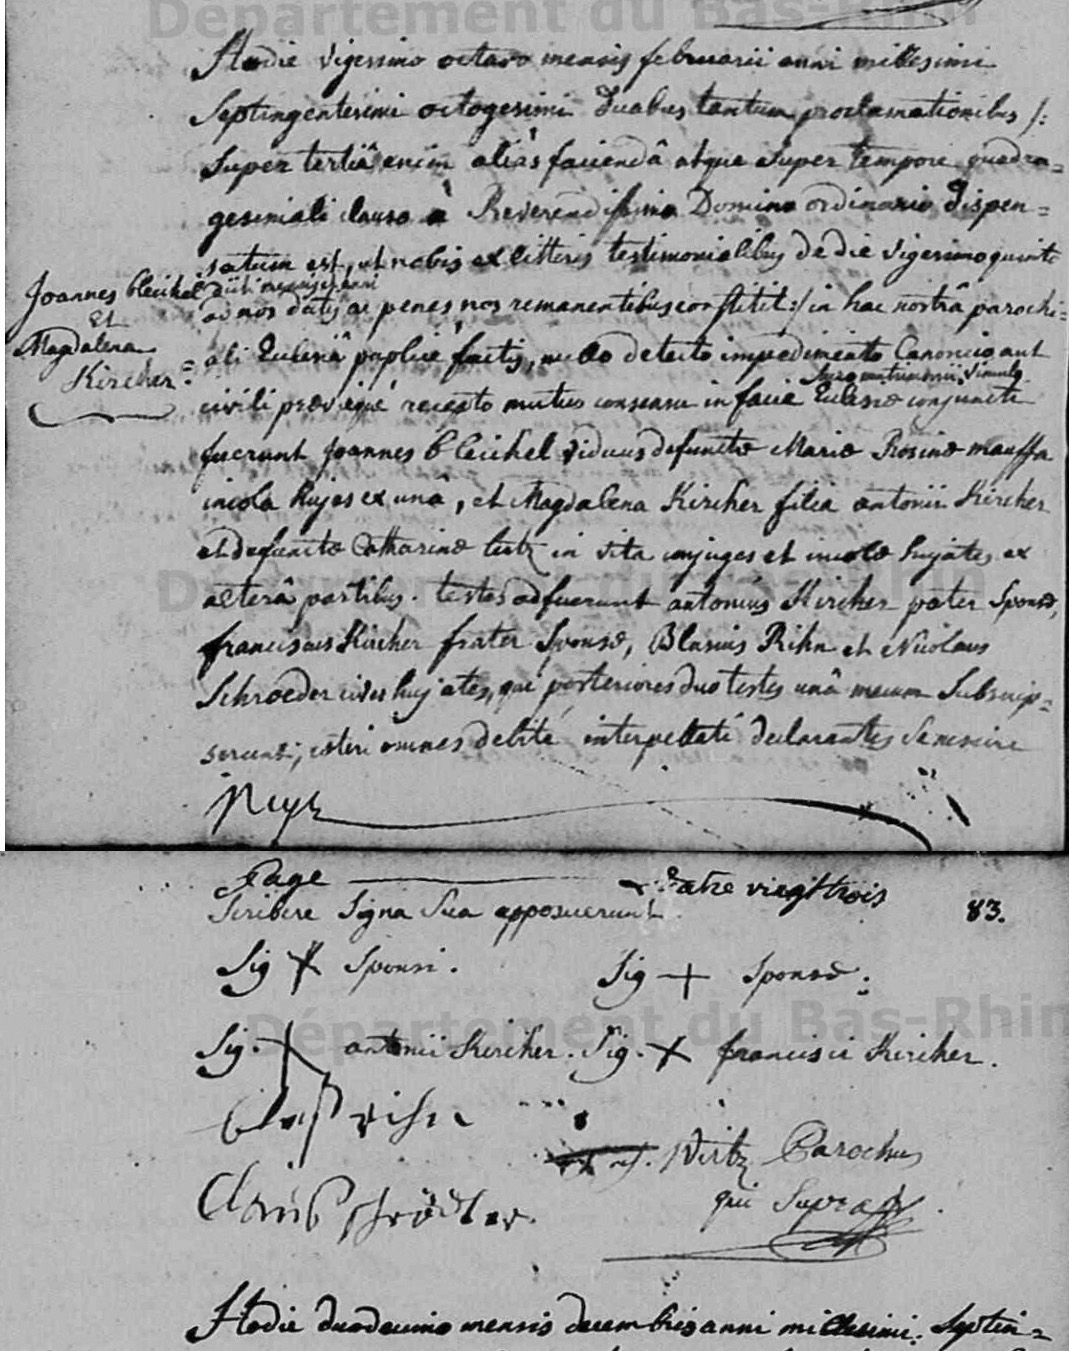 Département du Bas-Rhin
Hodie vigesimo octavo mensis februarii anni millesimi
Septingentesimi octogesimi duabus tantum proclamationibus /:
Super tertiâ enim aliàs faciendâ atque Super tempore quadra=
gesimali clauso à Reverendissimo Domino ordinario dispen=
satum est, ut nobis ex litteris testimonialibus de die vigesimo quinto
dicti mensis et anni
ad nos datis ac penes nos remanentibus constitit :/ in hac nostrâ parochi=
Joannes bleichel
et
Magdalena
Kircher.
ali Ecclesiâ publicè factis, nullo detecto impedimento Canonico aut
Sacro matrimonii vinculo
civili praevieque recepto mutuo consensu in facie Ecclesiae conjuncti
fuerunt Joannes bleichel viduus defunctae Mariae Rosinae mauffa
incola hujas ex unâ, et Magdalena Kircher filia antonii Kircher
et defunctae Catharinae lutz in vita conjuges et incolae hujates ex
alterâ partibus. testes adfuerunt antonius Kircher pater Sponsae,
franciscus Kircher frater Sponsae, Blasius Rihn et Nicolaus
Schroeder cives hujates, qui posteriores duo testes unâ mecum Subscrip=
serunt; ceteri omnes debitè interpellati declarantes Se nescire
Page quatre vingt trois
83.
Scribere Signa Sua apposuerunt
Sig + Sponsi. Sig + Sponsae.
Département du Bas-Rhin
Sig. + antonii Kircher. Sig. + francisci Kircher.
blas rihn
Wirtz Parochus
qui Supra
Claus schröder.
Hodie duodecimo mensis decembris anni millesimi Septin=